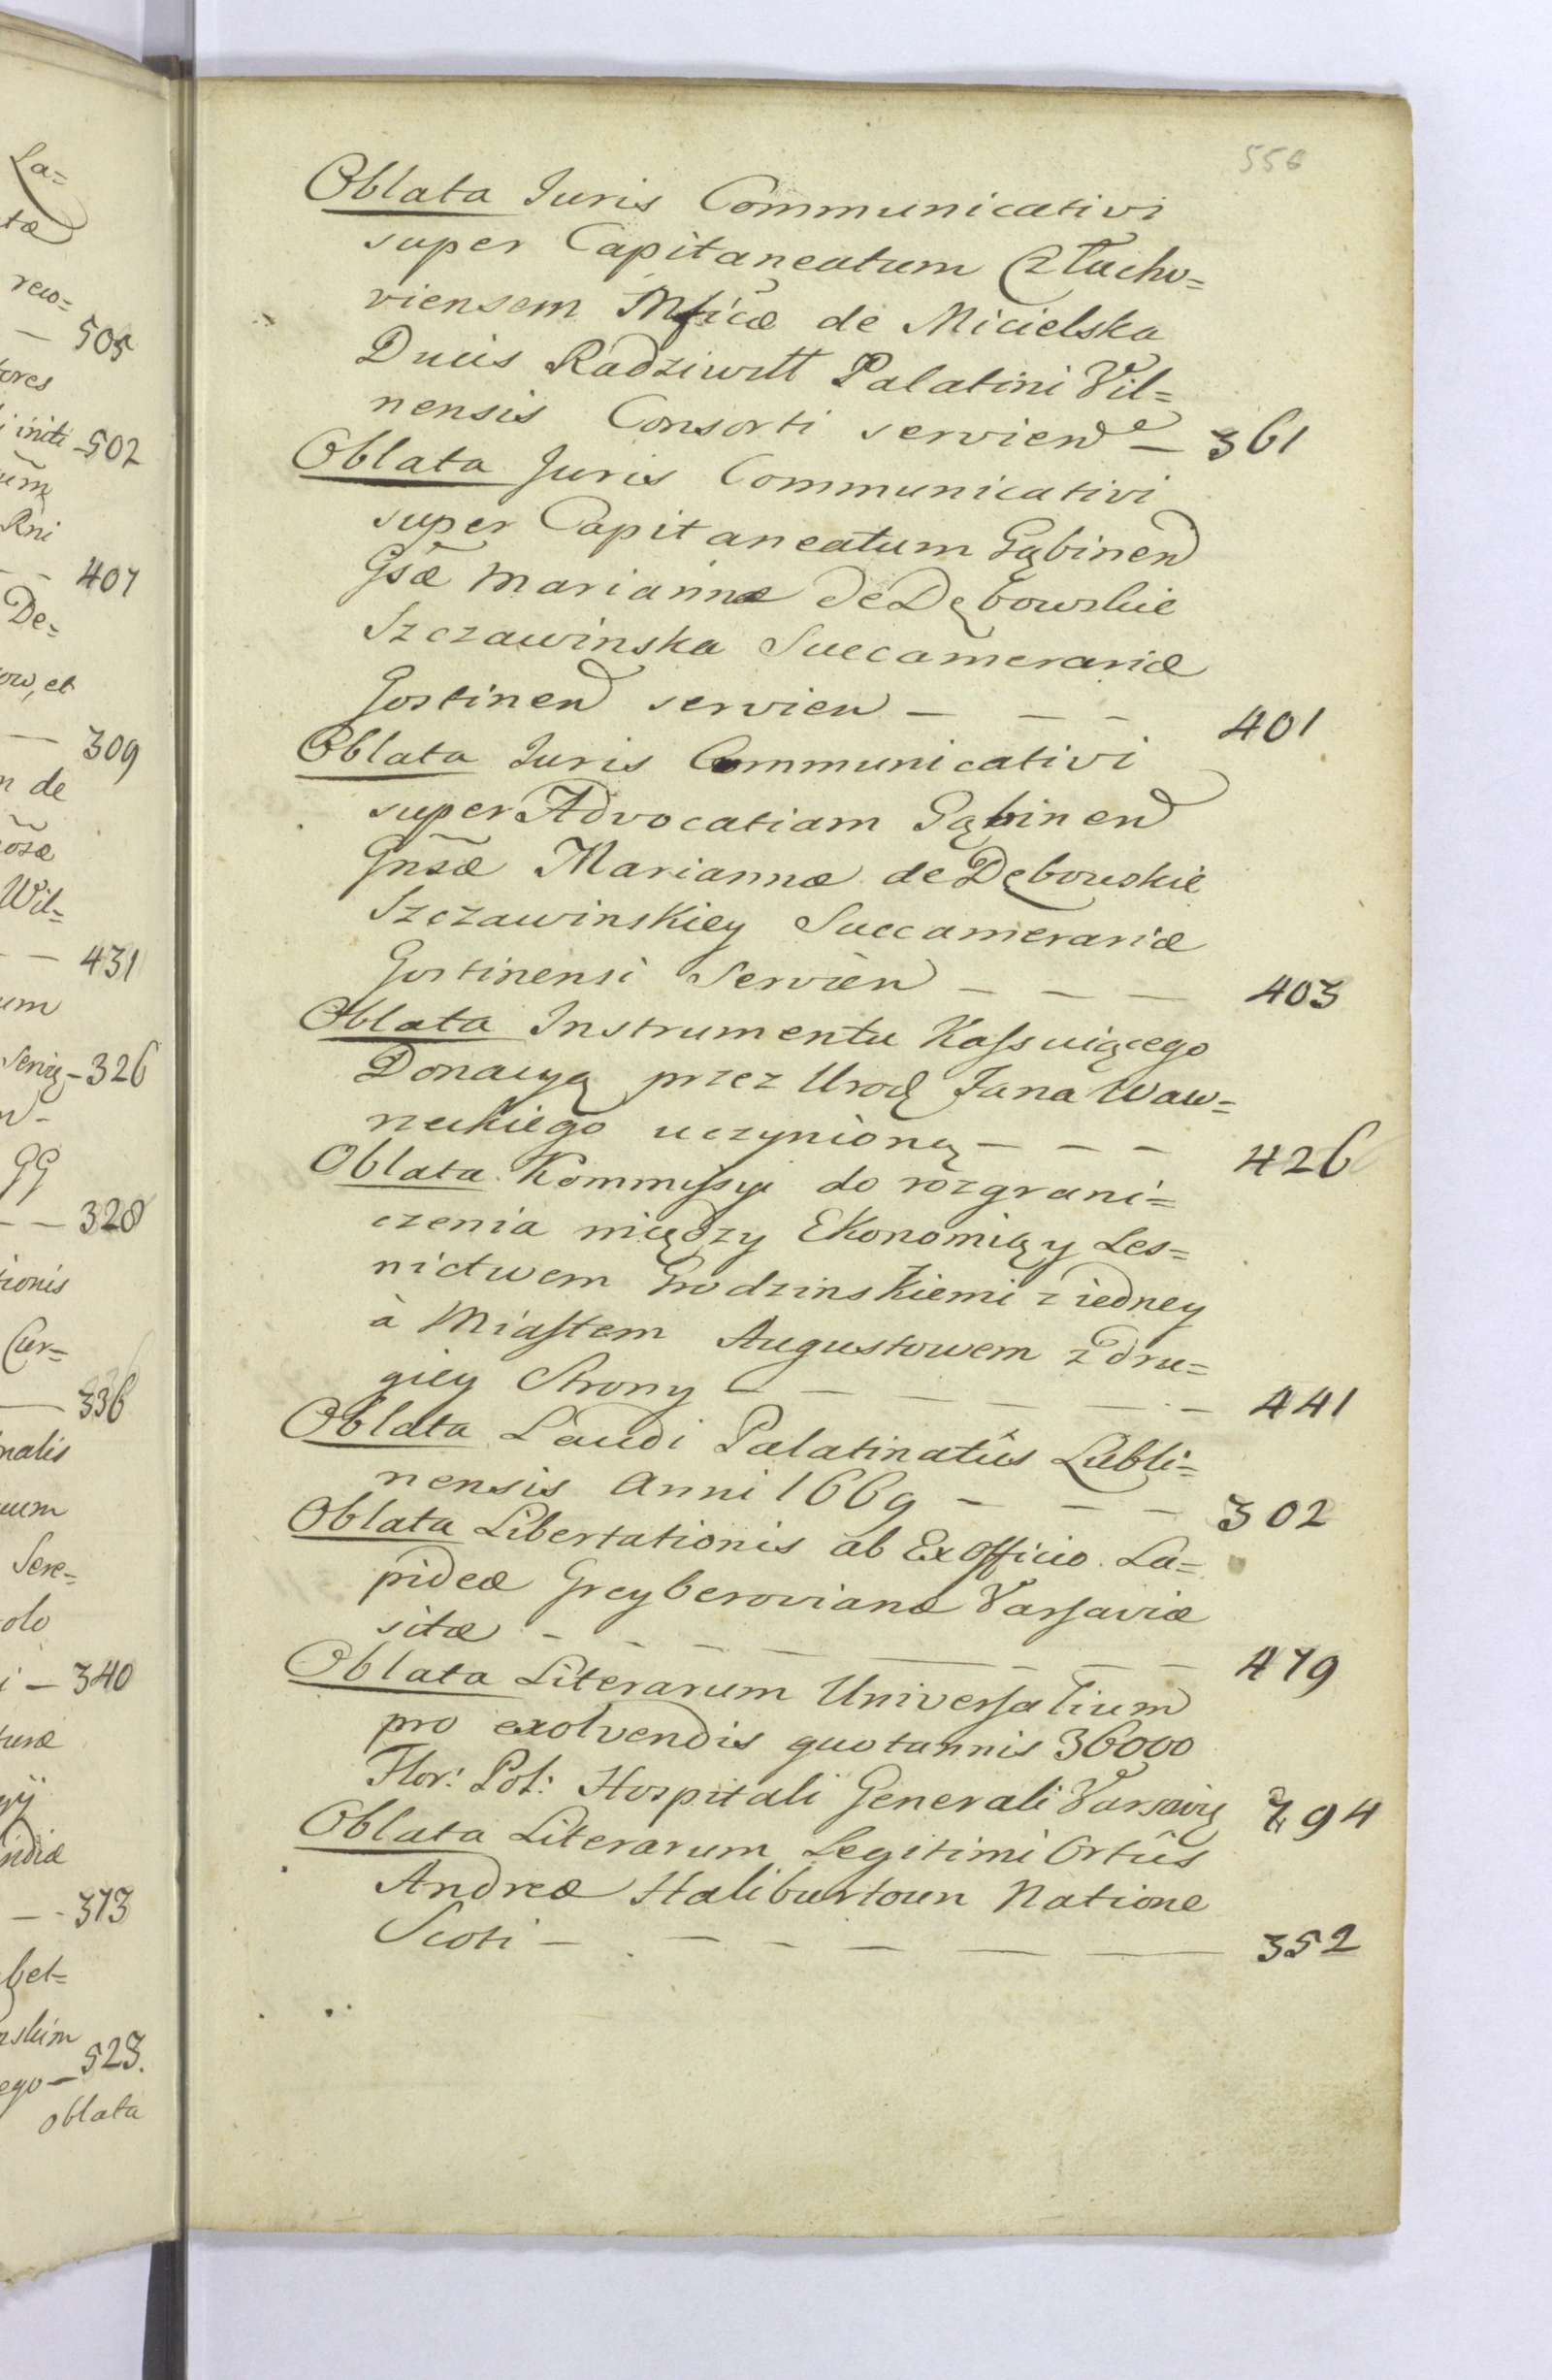 La=
ta
rew=
— 505
tores
i initi - 502
um
Rni
- - 407
De=
ow, et
— 309
n de
osæ
Wil=
- - 431
um
Serviẽ - 326
GG
- - 328
tionis
Cur=
— 336
nalis
uum
Sere=
olo
i — 340
turæ
yÿ
ndiæ
- - 373
bet=
nskim
ego — 523.
oblata
556
Oblata Iuris Communicativi
super Capitaneatum Człucho=
viensem Mficæ de Micielska
Ducis Radziwiłł Palatini Vil=
nensis Consorti serviend — 361
Oblata Juris Communicativi
super Capitaneatum Gąbinen
Gsæ Mariannæ de Dębowskie
Szczawinska Succamerariæ
Gostinen servien — — — 401
Oblata Iuris Communicativi
super Advocatiam Gąbinen
Gnsæ Mariannæ de Dębowskie
Szczawinskiey Succamerariæ
Gostinensi Servien — — — 403
Oblata Instrumentu Kassuiącego
Donacyą przez Urod Jana Waw=
rzeckiego uczynioną — — — 426
Oblata Kommissyi do rozgrani=
czenia między Ekonomią y Les=
nictwem Grodzinskiemi z iedney
à Miastem Augustowem z dru=
giey Strony — — — — — 441
Oblata Laudi Palatinatûs Lubli=
nensis Anni 1669 — — — 302
Oblata Libertationis ab Ex Officio La=
pideæ Greyberovianæ Varsaviæ
sitæ — — — — — — — 479
Oblata Literarum Universalium
pro exolvendis quotannis 36000
Flor: Pol: Hospitali Generali Varsavię 294
Oblata Literarum Legitimi Ortûs
Andreæ Haliburtoun Natione
Scoti — — — — — — 352